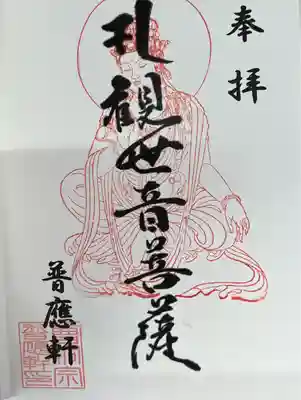 奉拝
観世音菩薩
普應軒